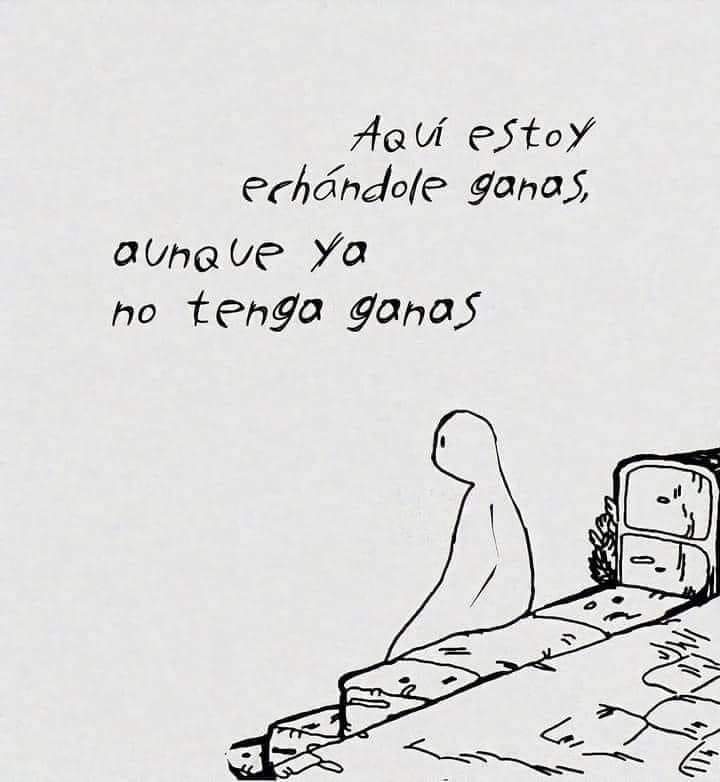 Aquí estoy
echándole ganas,
aunque ya
no tenga ganas